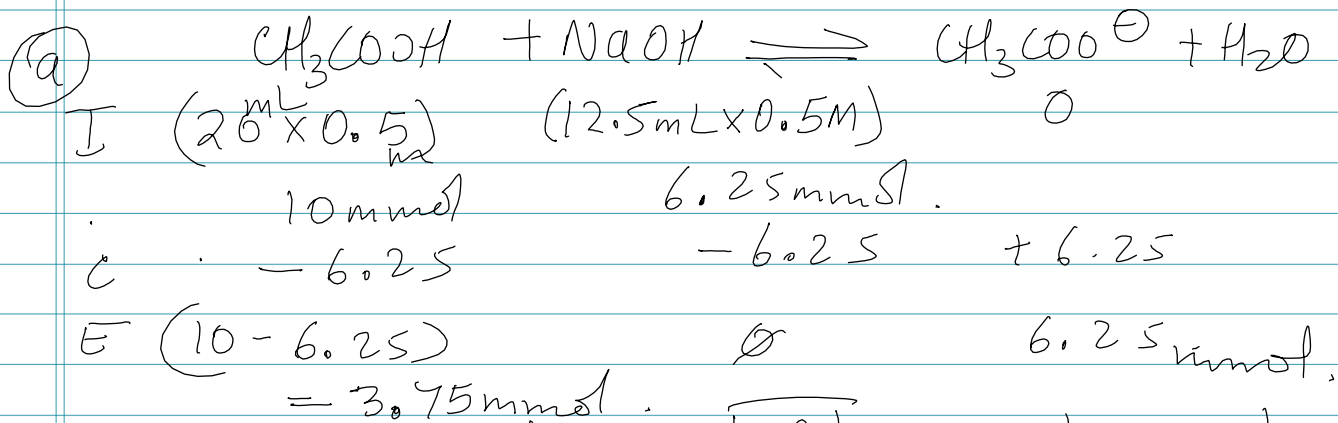 (a) CH₃COOH + NaOH ⇌ CH₃COO⊖ + H₂O
I (20 mL × 0.5) (12.5mL×0.5M) 0
10mmol 6.25mmol.
C - 6.25 - 6.25 + 6.25
E (10 - 6.25) ∅ 6.25mmol.
= 3.75mmol.